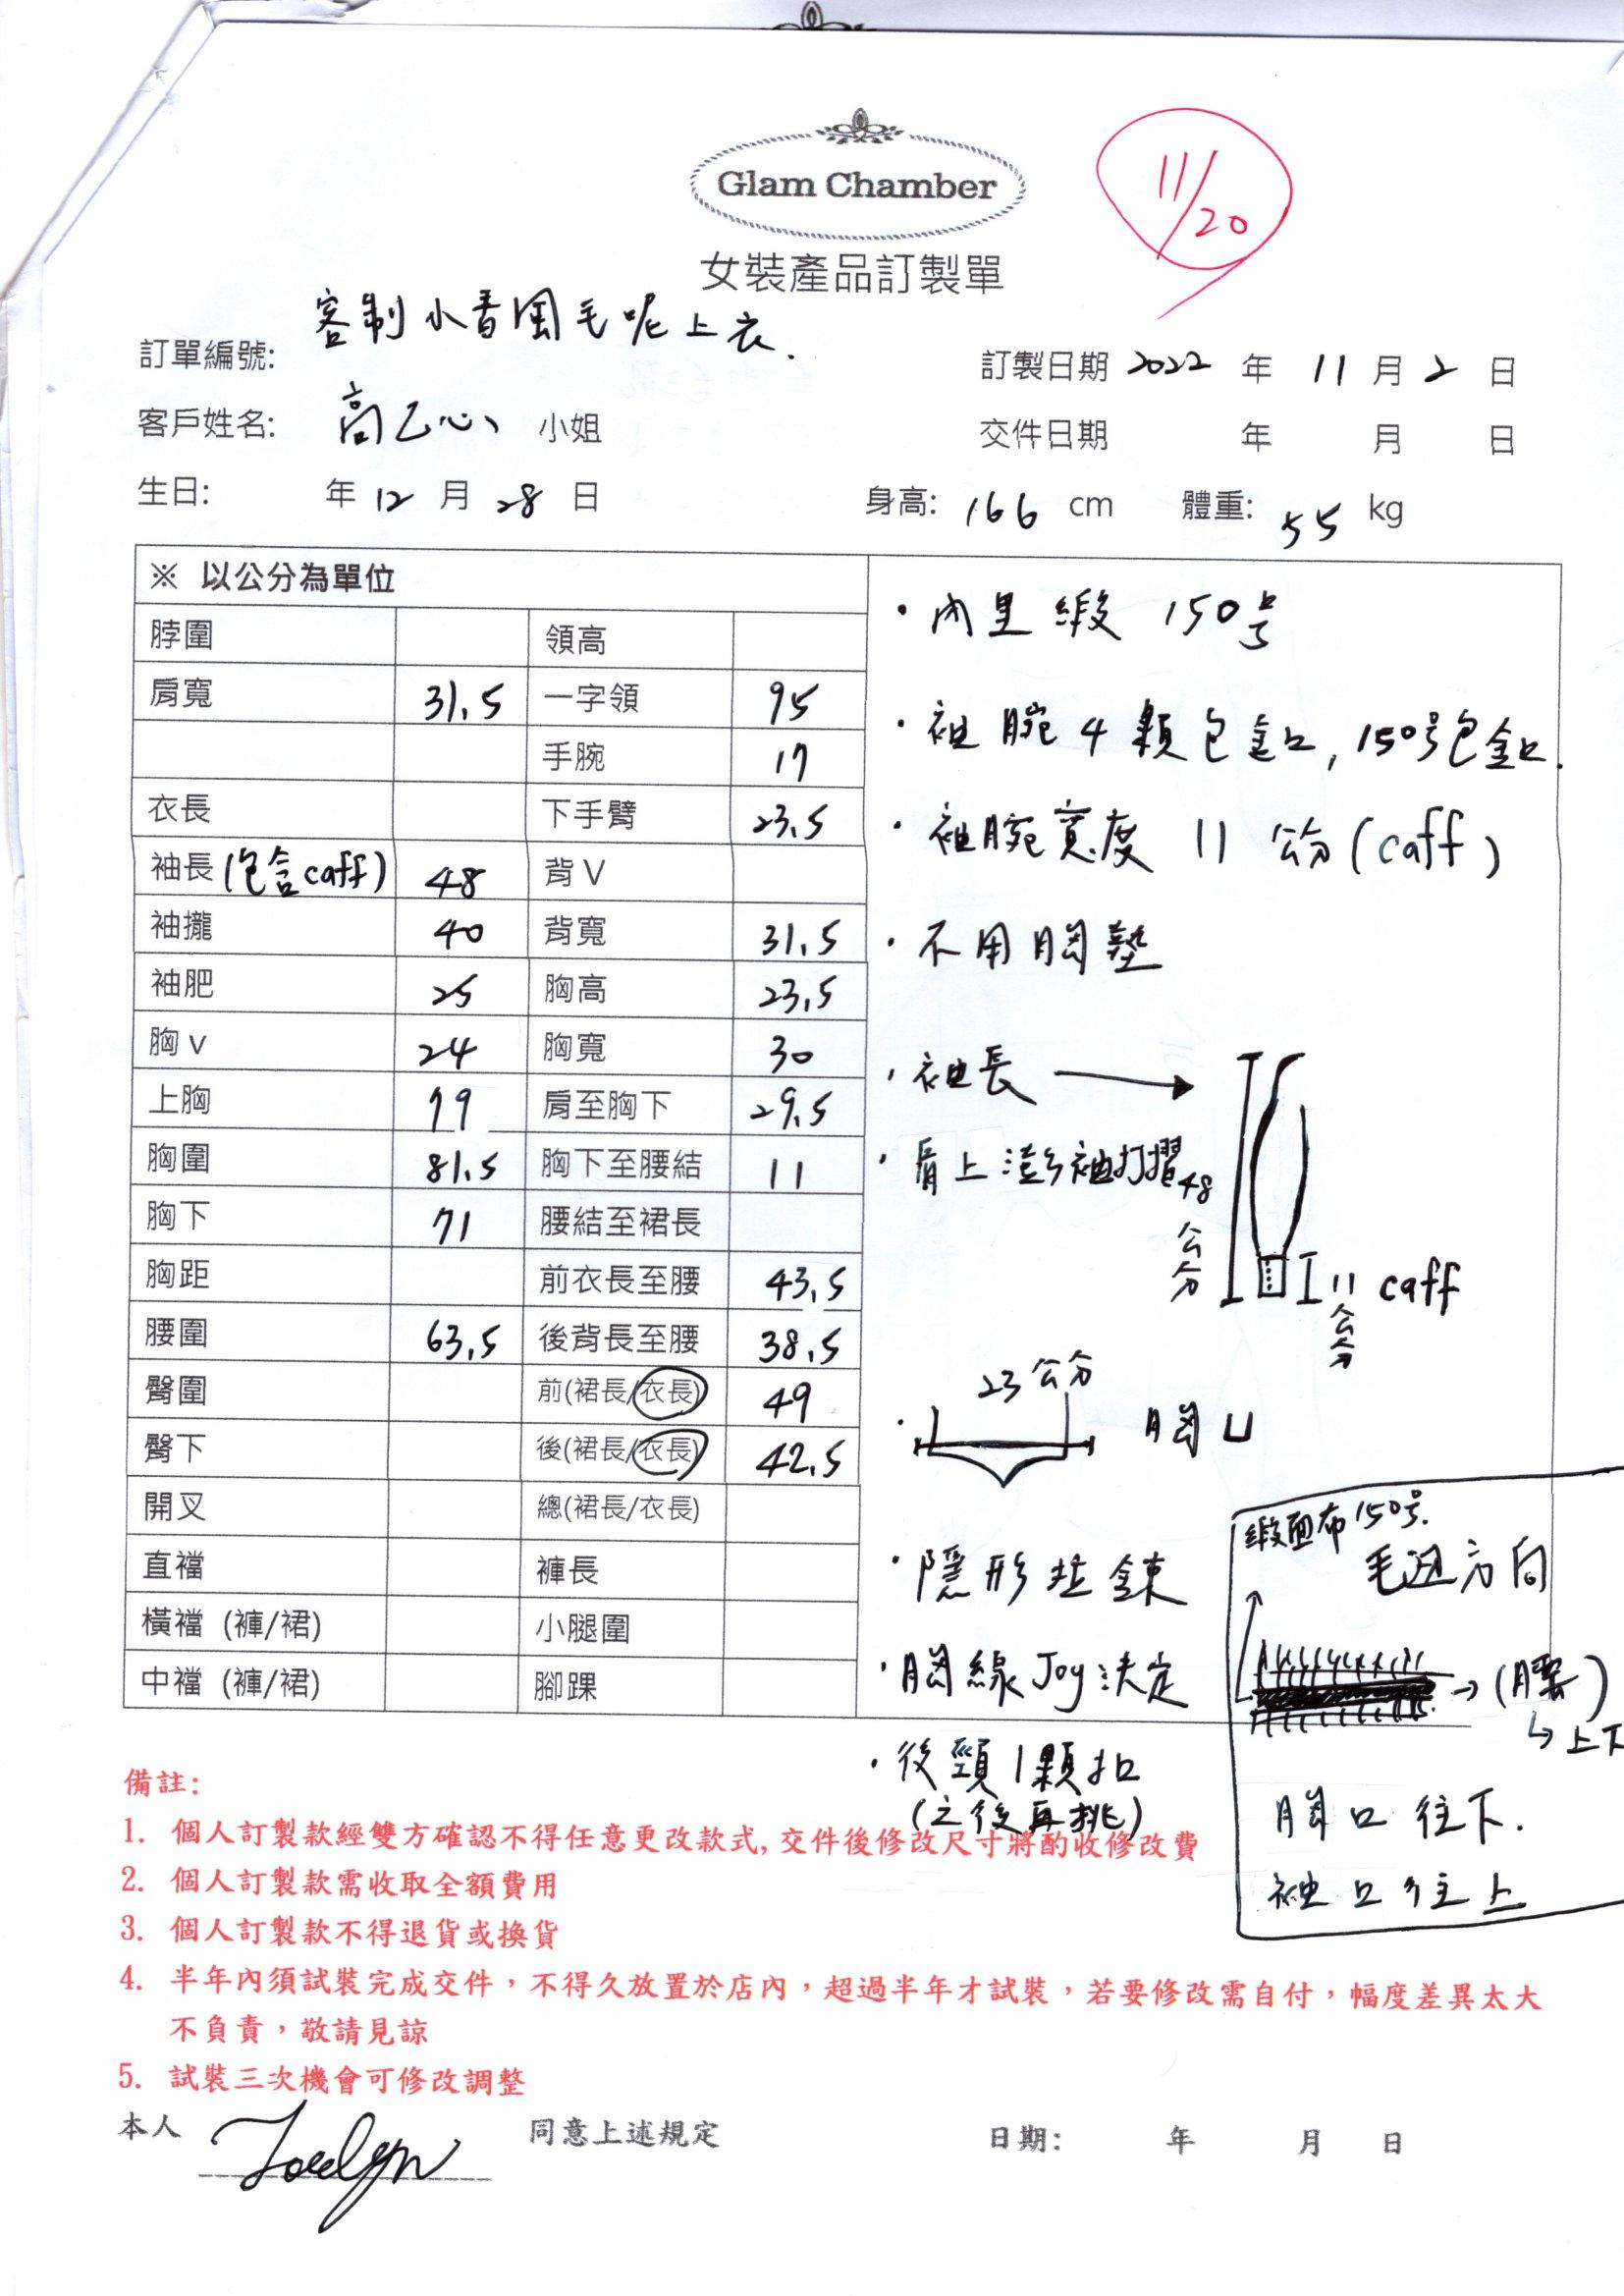 Glam Chamber
11/20
女裝產品訂製單
客制小香風毛呢上衣.
訂單編號:
訂製日期 2022 年 11 月 2 日
客戶姓名: 高乙心 小姐
交件日期 年 月 日
生日: 年 12 月 28 日
身高: 166 cm 體重: 55 kg
※ 以公分為單位
脖圍 領高
肩寬 31.5 一字領 95
手腕 17
衣長 下手臂 23.5
袖長(包含caff) 48 背V
袖攏 40 背寬 31.5
袖肥 25 胸高 23.5
胸v 24 胸寬 30
上胸 79 肩至胸下 29.5
胸圍 81.5 胸下至腰結 11
胸下 71 腰結至裙長
胸距 前衣長至腰 43.5
腰圍 63.5 後背長至腰 38.5
臀圍 前(裙長/衣長) 49
臀下 後(裙長/衣長) 42.5
開叉 總(裙長/衣長)
直襠 褲長
橫襠 (褲/裙) 小腿圍
中襠 (褲/裙) 腳踝
·內里緞 150号
·袖腕4顆包釦, 150号包釦.
·袖腕寬度 11 公分(caff)
·不用胸墊
·袖長
·肩上澎袖打摺
48公分
11公分 caff
23公分
·胸凵
·隱形拉鍊
·胸線Joy決定
·後頸1顆扣
(之後再挑)
緞面布150号.
毛边方向
(腰)
上下
胸口往下.
袖口往上
備註:
1. 個人訂製款經雙方確認不得任意更改款式, 交件後修改尺寸將酌收修改費
2. 個人訂製款需收取全額費用
3. 個人訂製款不得退貨或換貨
4. 半年內須試裝完成交件，不得久放置於店內，超過半年才試裝，若要修改需自付，幅度差異太大
不負責，敬請見諒
5. 試裝三次機會可修改調整
本人 Jocelyn 同意上述規定 日期: 年 月 日